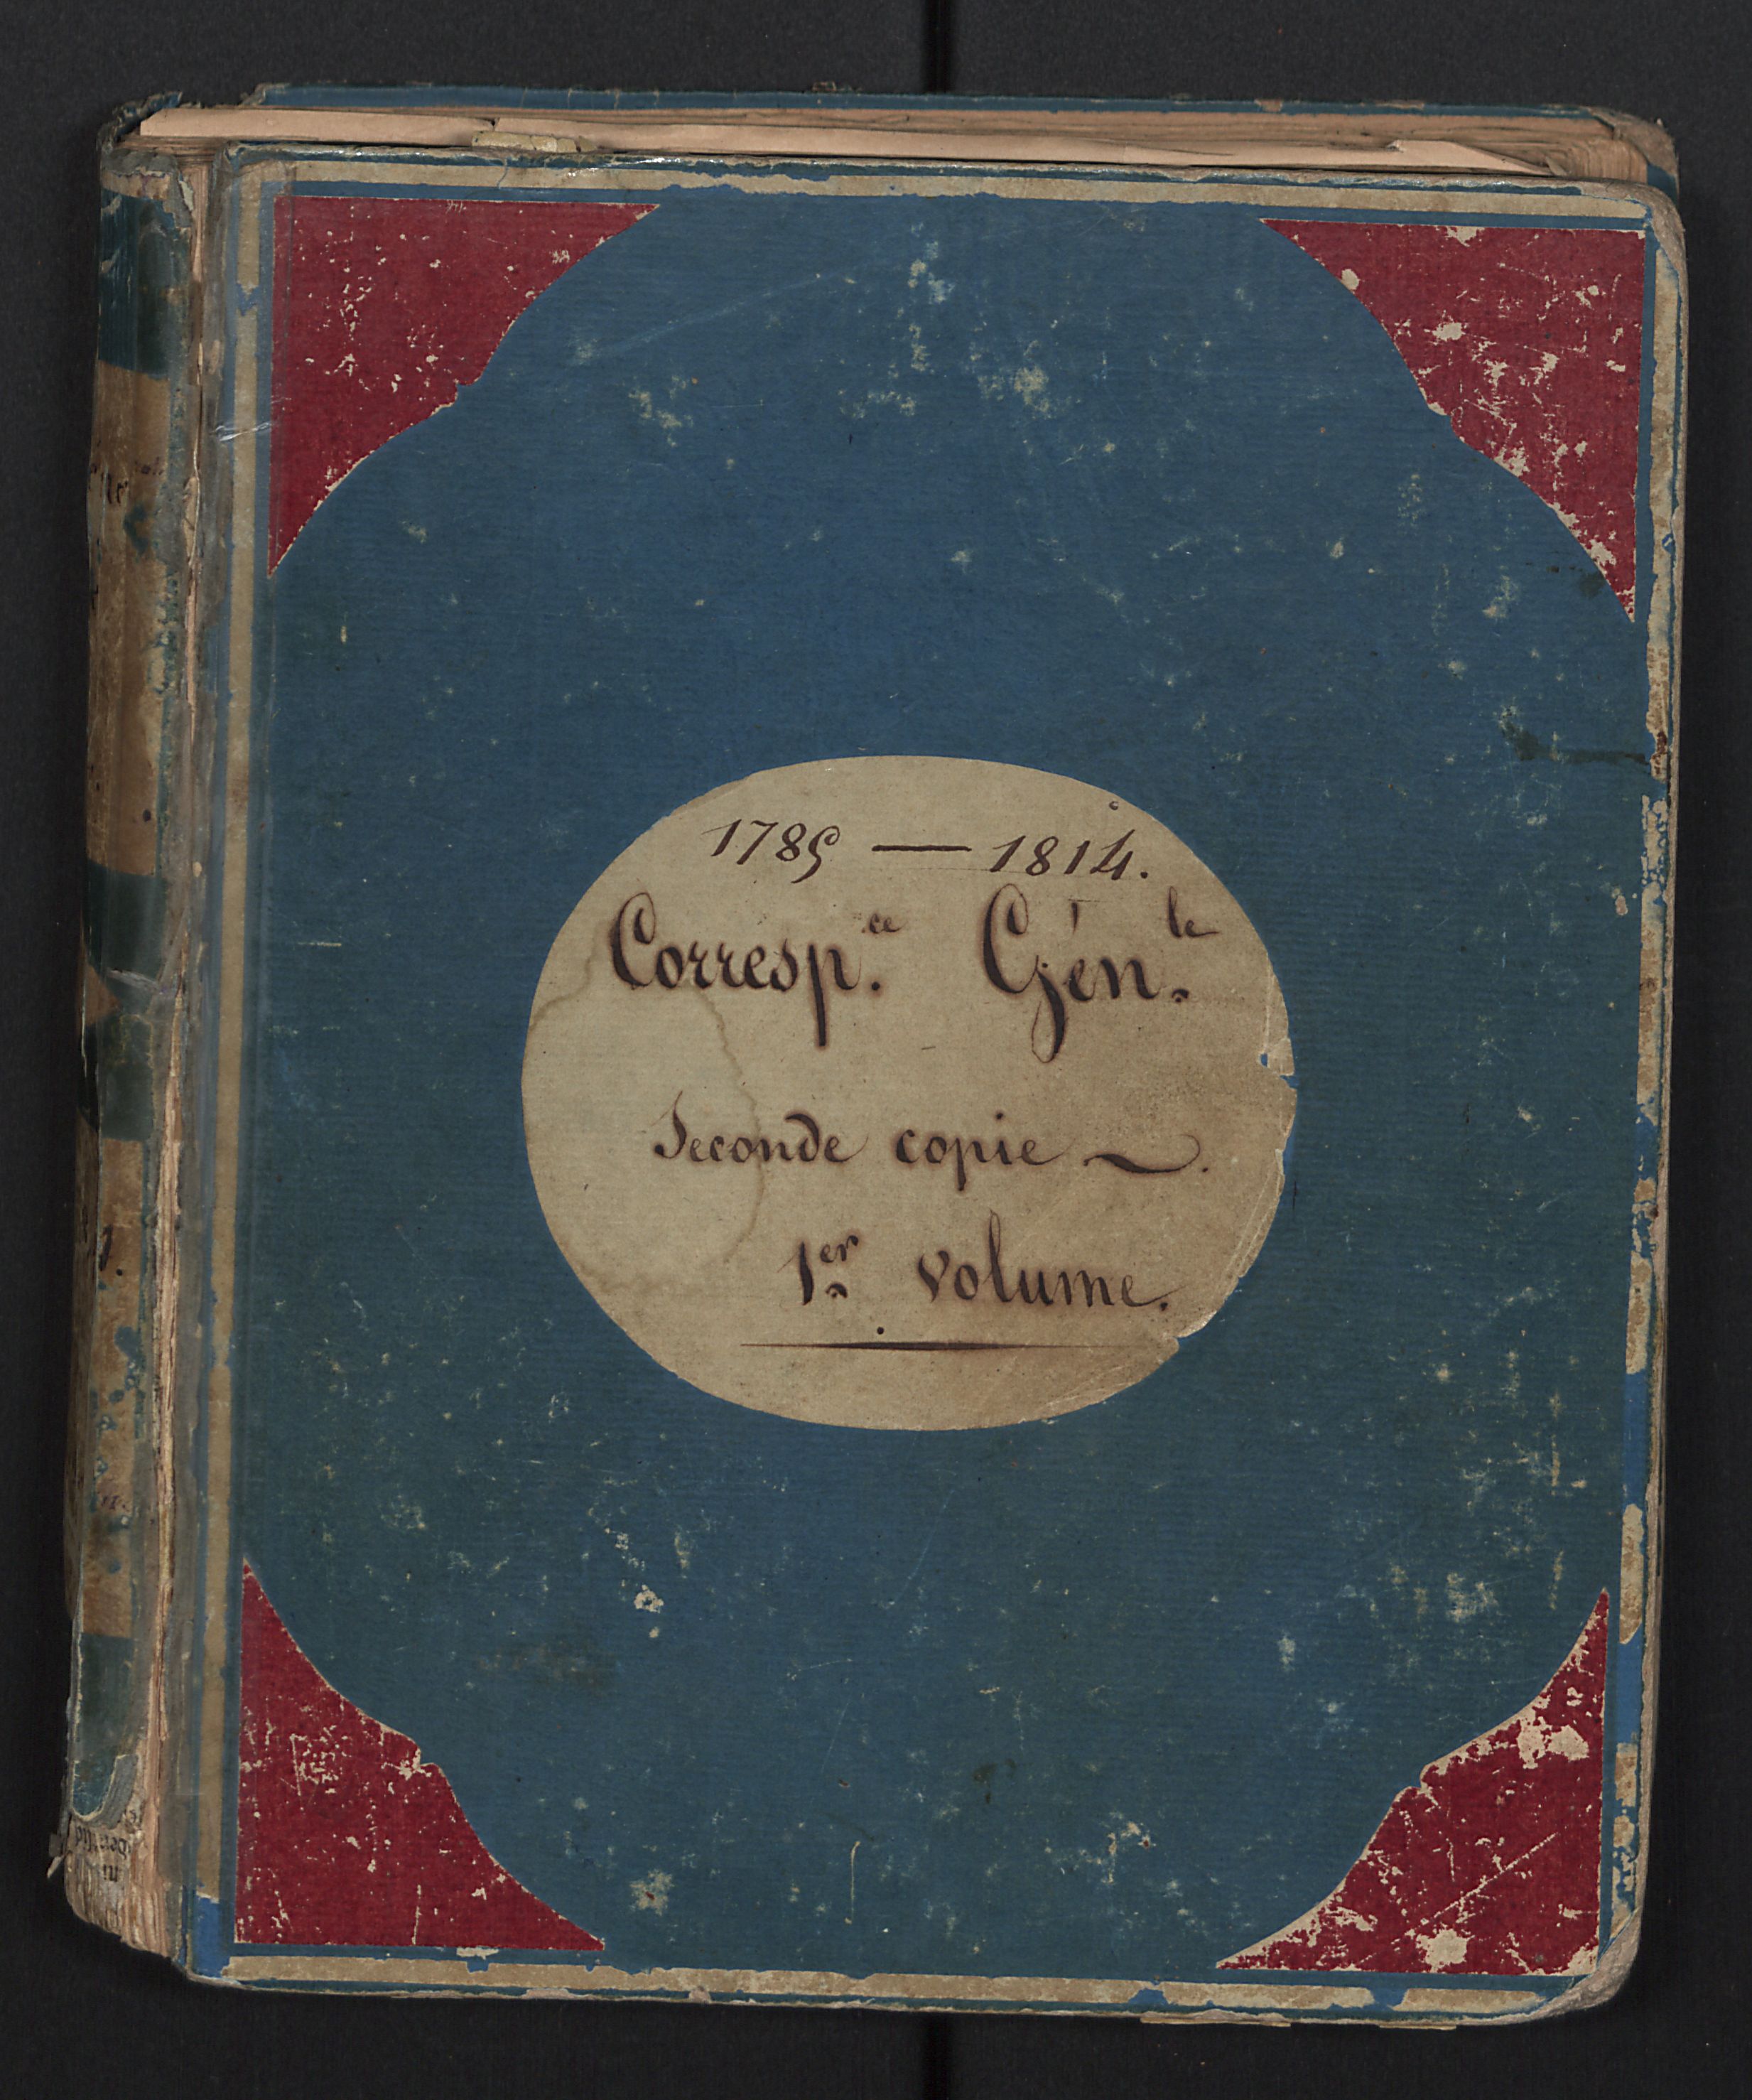 1785 — 1814.
Corresp.ce Gén.le
Seconde copie —.
1er volume.